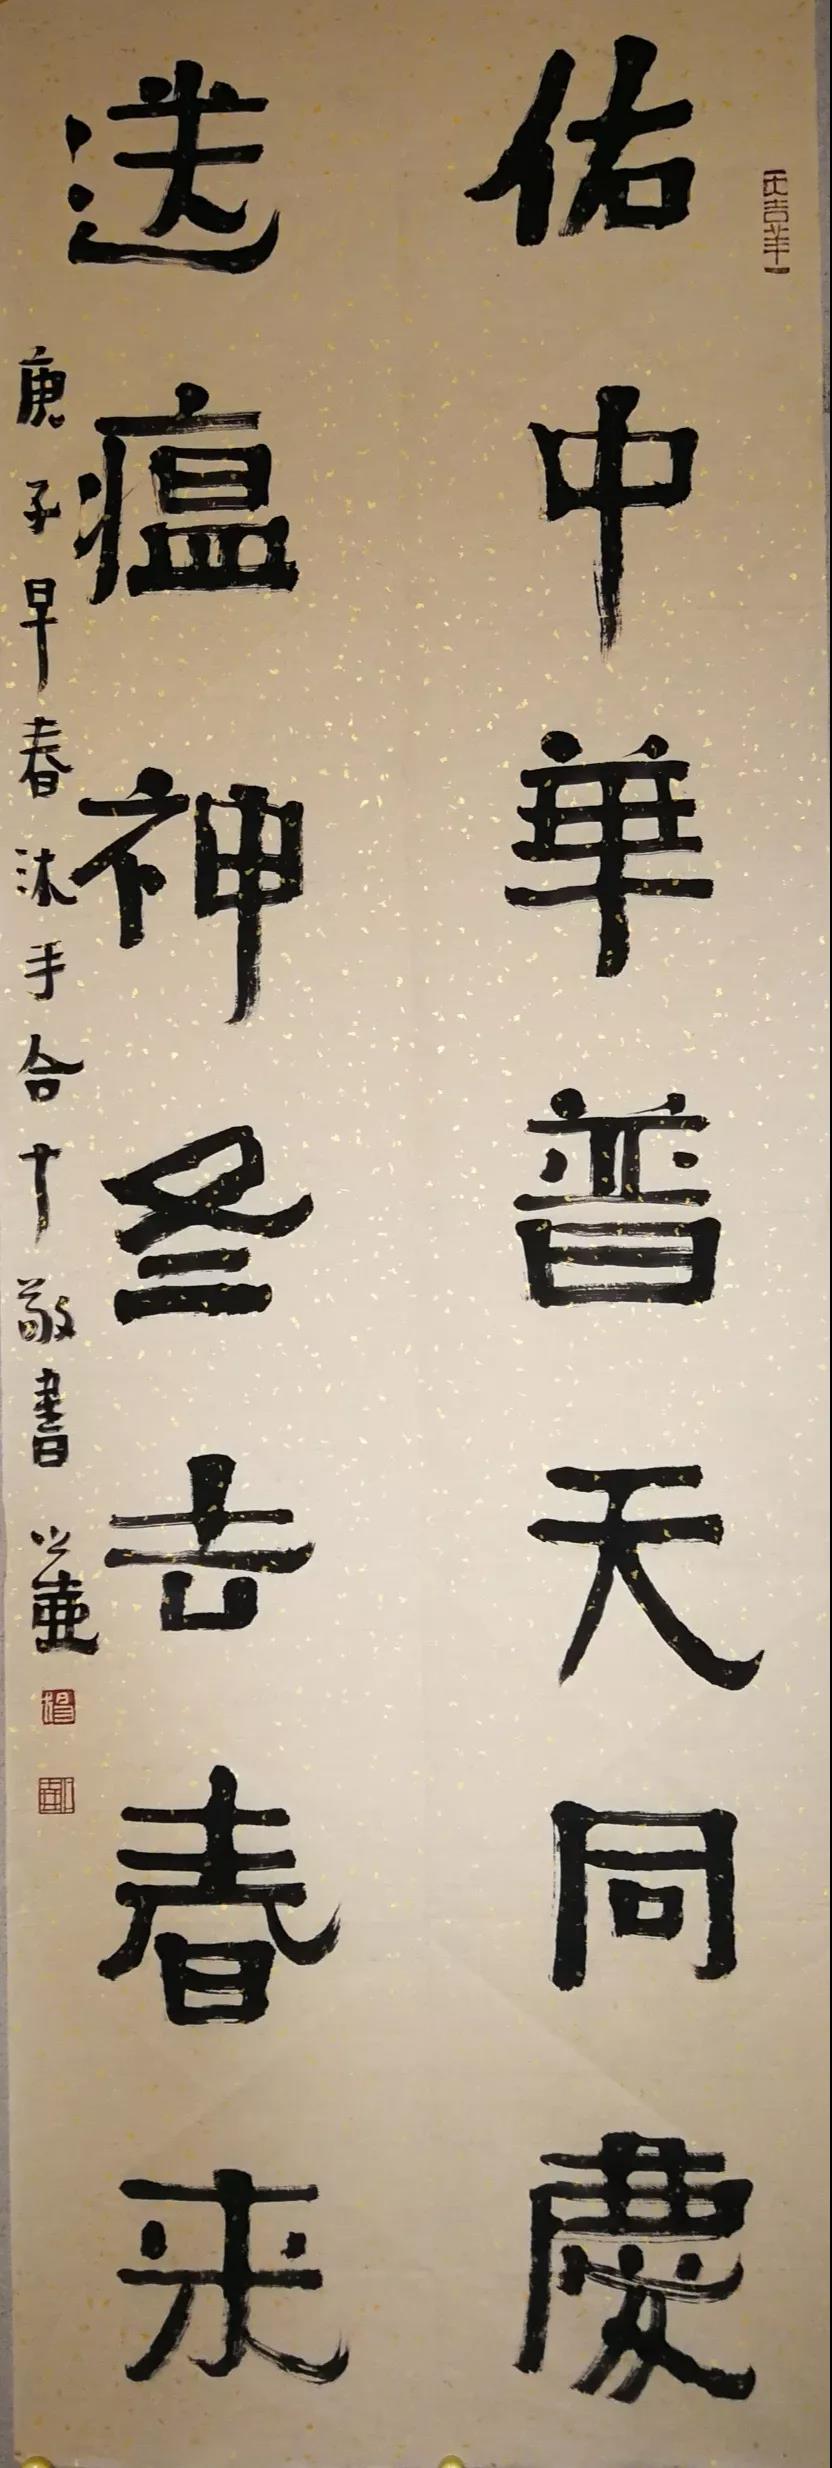 佑中華普天同慶
送瘟神冬去春來
庚子早春沐手合十敬書